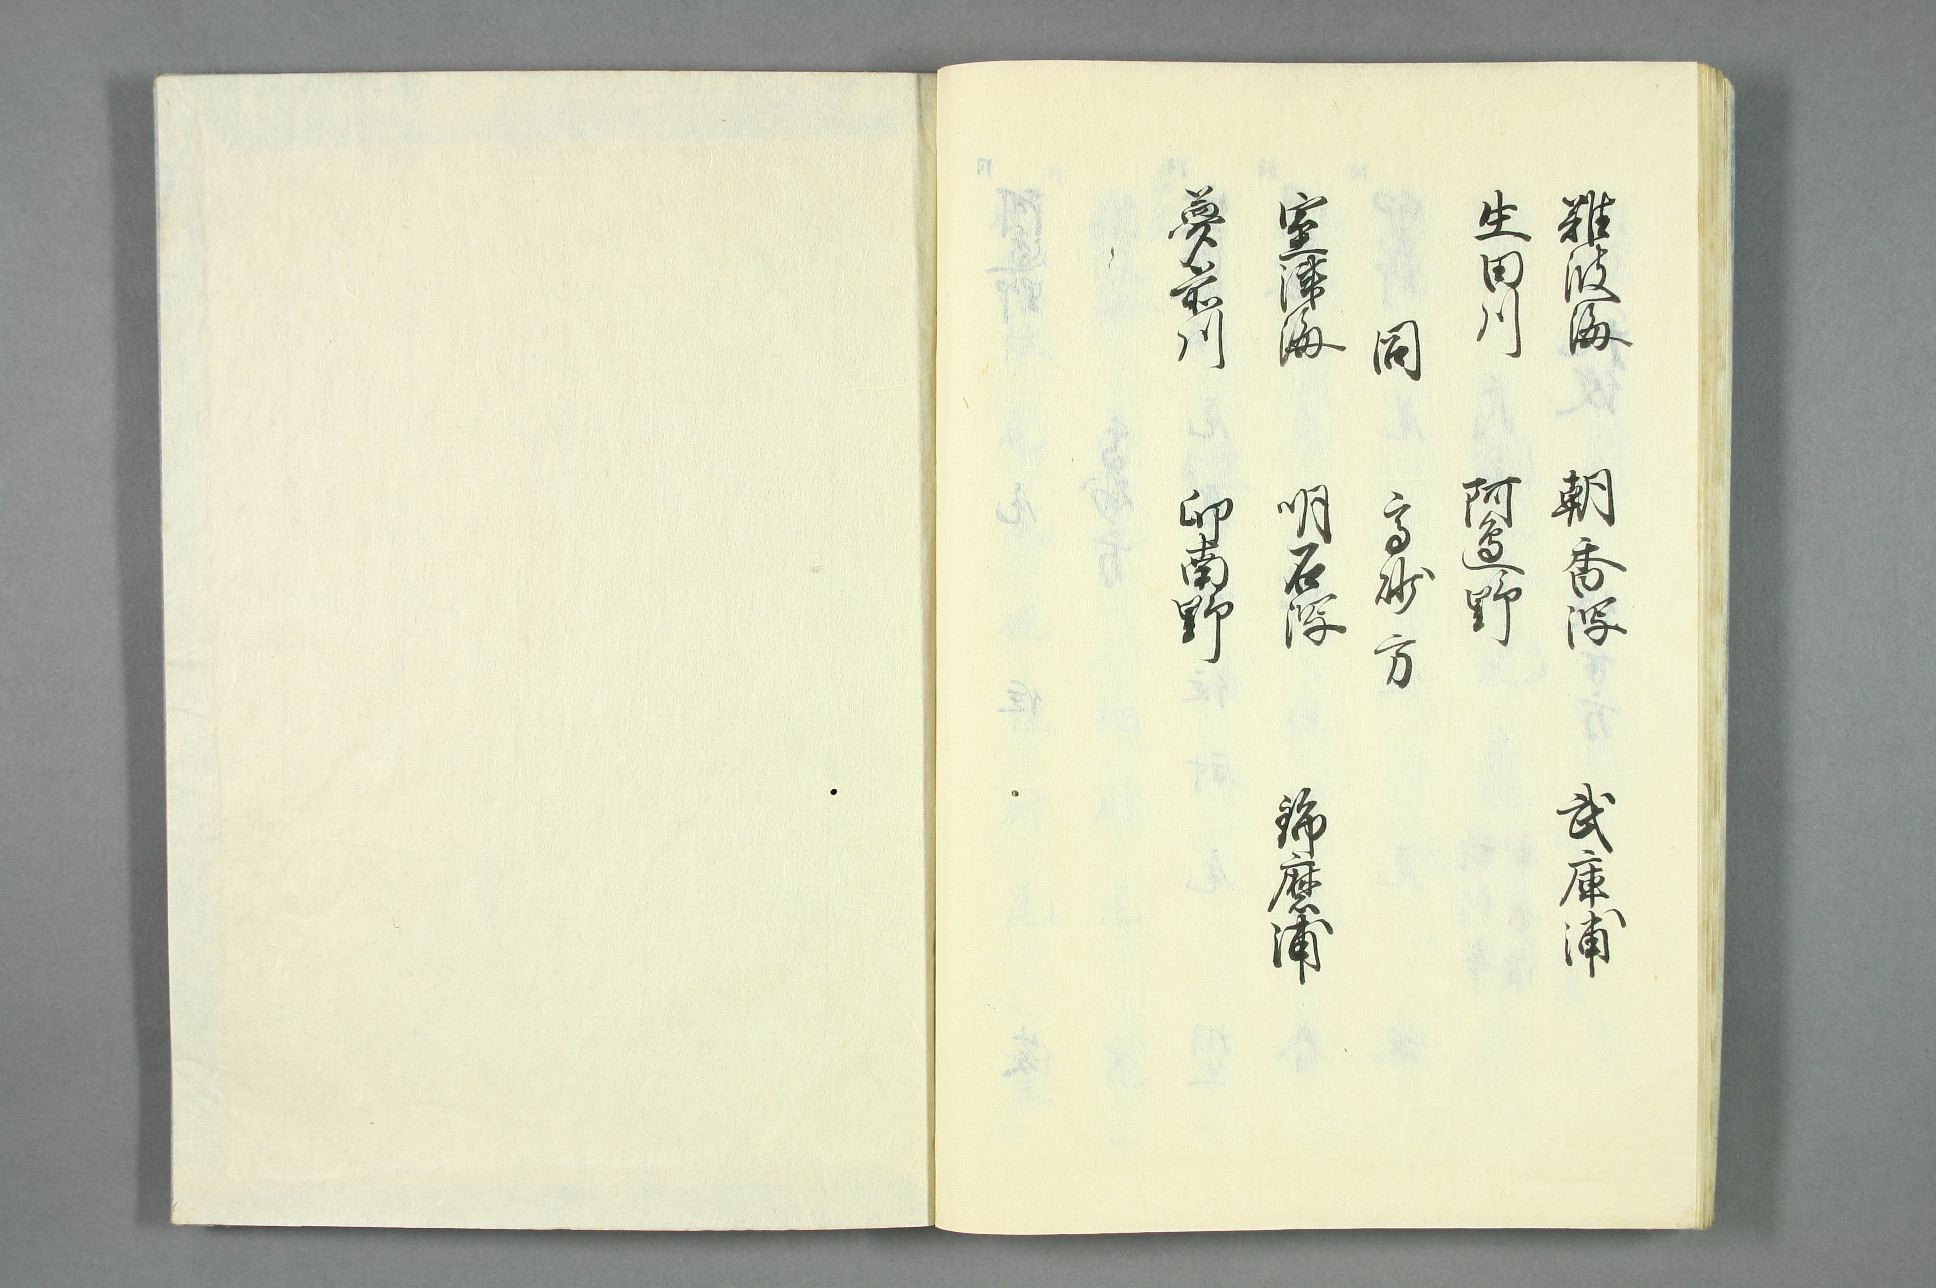 難波海 朝香潟 武庫浦
生田川 阿邊野
同 高砂方
室津海 明石潟 錺麿浦
夢前川 印南野